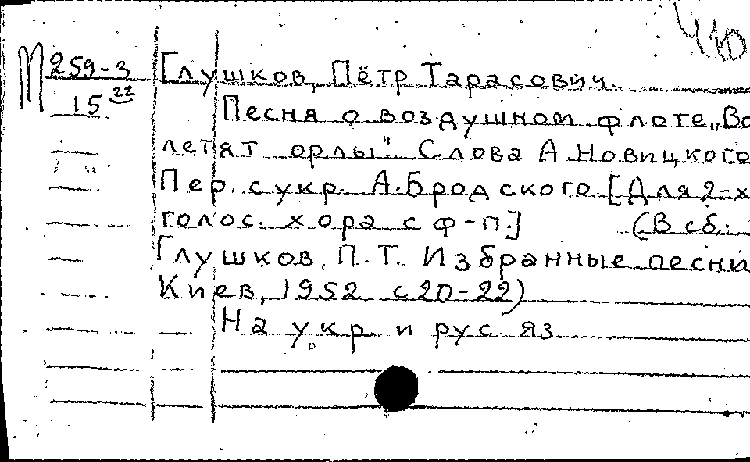 П 259-3
15 22
Глушков, Пётр Тарасович.
Песня о воздушном флоте „Во
летят орлы". Слова А. Новицкого
Пер. с укр. А. Бродского [Для 2-х
голос. хора с ф-п.] (В сб.:
Глушков, П. Т. Избранные песни
Киев, 1952 с 20-22)
На укр. и рус яз